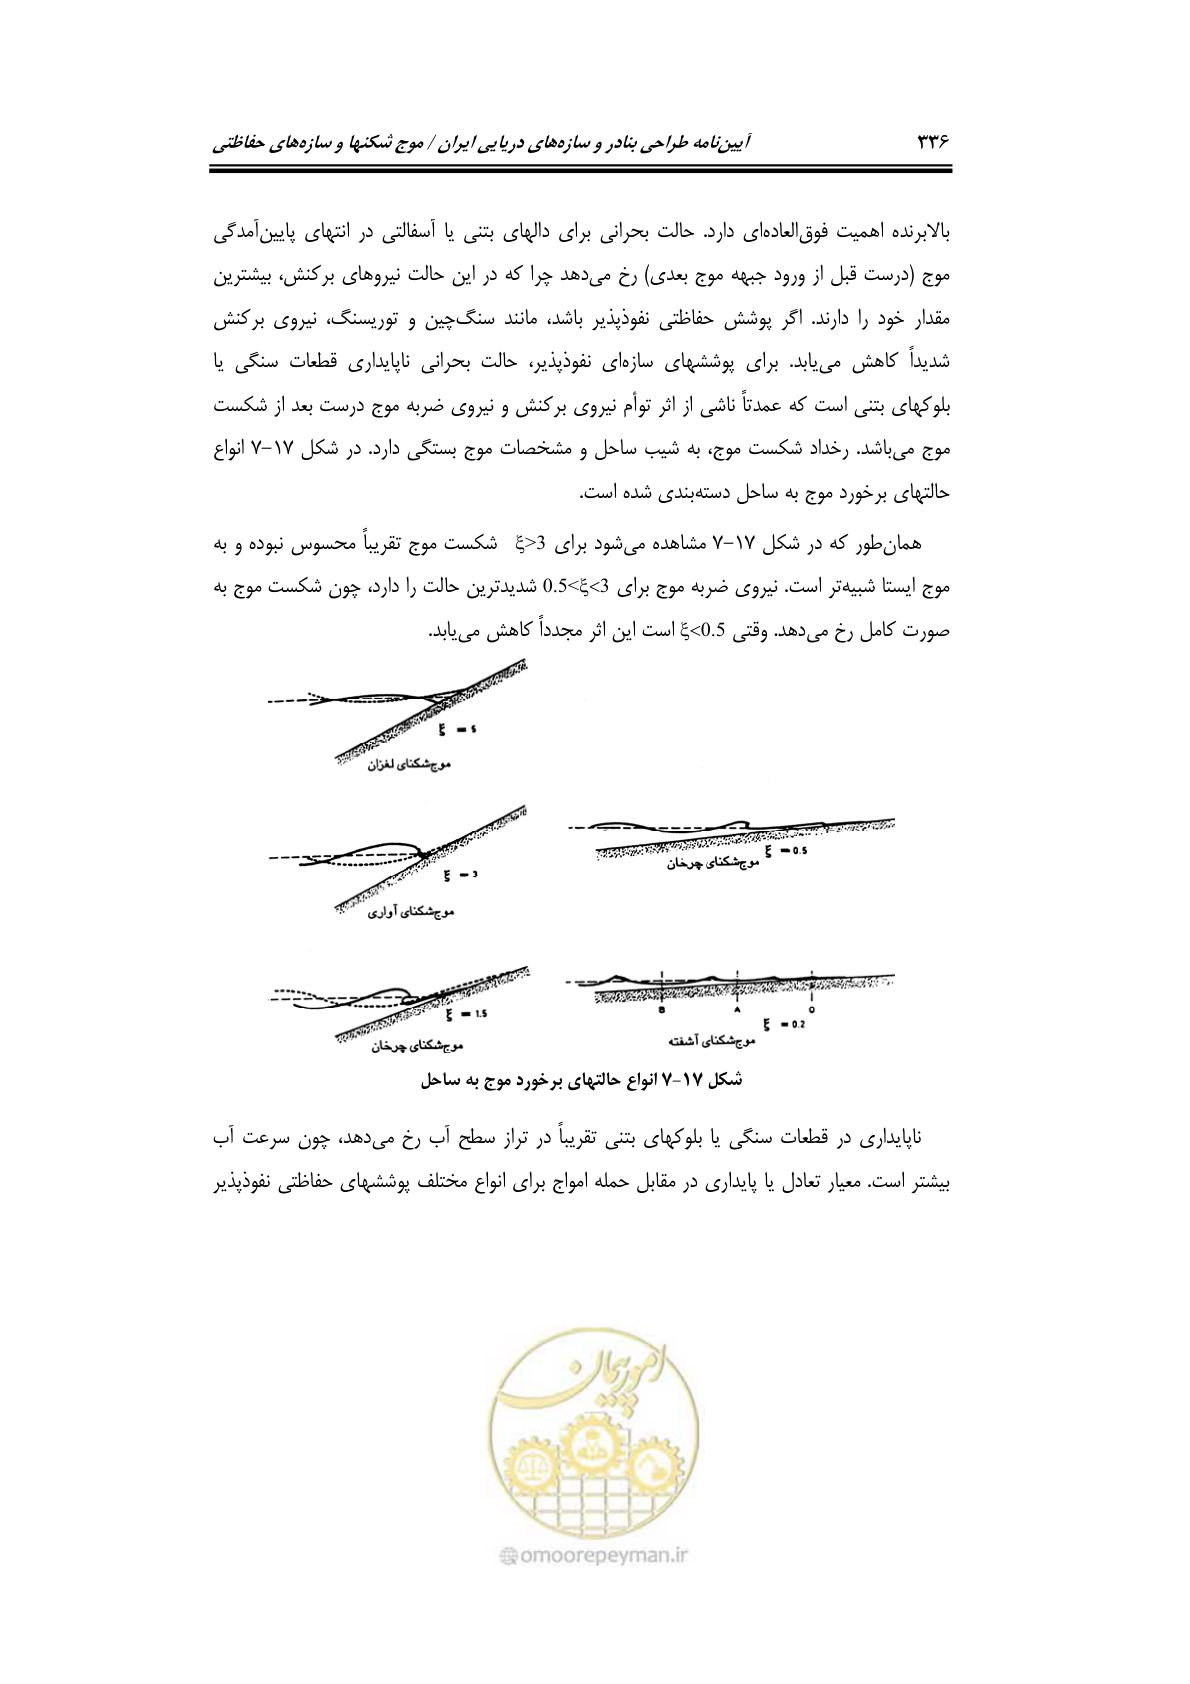 ۳۳۶ آیین‌نامه طراحی بنادر و سازه‌های دریایی ایران / موج شکنها و سازه‌های حفاظتی
بالابرنده اهمیت فوق‌العاده‌ای دارد. حالت بحرانی برای دالهای بتنی یا آسفالتی در انتهای پایین‌آمدگی
موج (درست قبل از ورود جبهه موج بعدی) رخ می‌دهد چرا که در این حالت نیروهای برکنش، بیشترین
مقدار خود را دارند. اگر پوشش حفاظتی نفوذپذیر باشد، مانند سنگ‌چین و توریسنگ، نیروی برکنش
شدیداً کاهش می‌یابد. برای پوششهای سازه‌ای نفوذپذیر، حالت بحرانی ناپایداری قطعات سنگی یا
بلوکهای بتنی است که عمدتاً ناشی از اثر توأم نیروی برکنش و نیروی ضربه موج درست بعد از شکست
موج می‌باشد. رخداد شکست موج، به شیب ساحل و مشخصات موج بستگی دارد. در شکل ۱۷-۷ انواع
حالتهای برخورد موج به ساحل دسته‌بندی شده است.
همان‌طور که در شکل ۱۷-۷ مشاهده می‌شود برای ξ>3 شکست موج تقریباً محسوس نبوده و به
موج ایستا شبیه‌تر است. نیروی ضربه موج برای 0.5<ξ<3 شدیدترین حالت را دارد، چون شکست موج به
صورت کامل رخ می‌دهد. وقتی ξ<0.5 است این اثر مجدداً کاهش می‌یابد.
ξ = 5
موج‌شکنای لغزان
ξ = 3
موج‌شکنای آواری
ξ = 0.5
موج‌شکنای چرخان
ξ = 1.5
موج‌شکنای چرخان
B A O
ξ = 0.2
موج‌شکنای آشفته
شکل ۱۷-۷ انواع حالتهای برخورد موج به ساحل
ناپایداری در قطعات سنگی یا بلوکهای بتنی تقریباً در تراز سطح آب رخ می‌دهد، چون سرعت آب
بیشتر است. معیار تعادل یا پایداری در مقابل حمله امواج برای انواع مختلف پوششهای حفاظتی نفوذپذیر
امور پیمان
@omoorepeyman.ir